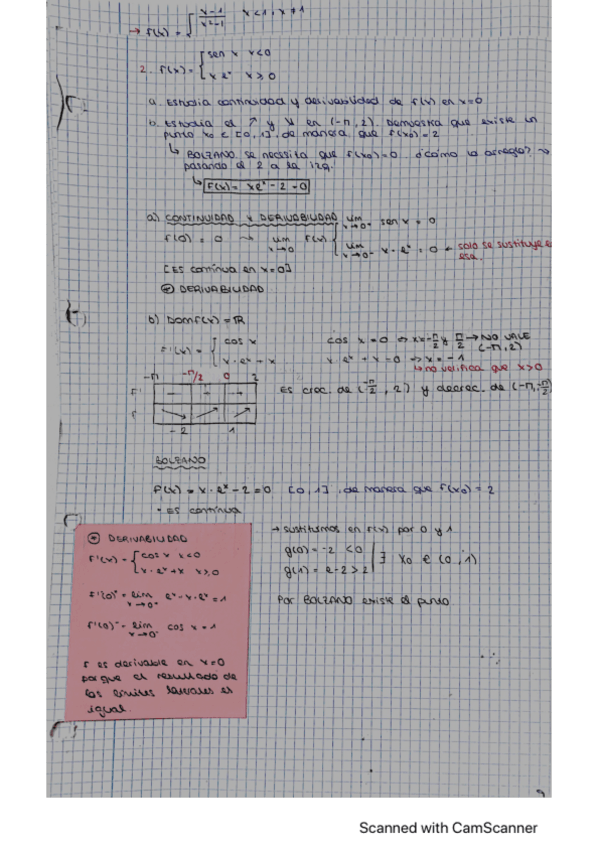 → f(x) = { x-1 / x²-1   x<1, x≠1
2. f(x) = { sen x   x<0
x eˣ   x≥0
a. Estudia continuidad y derivabilidad de f(x) en x=0
b. Estudia el ↗ y ↘ en (-π, 2). Demuestra que existe un
punto x₀ ∈ [0, 1], de manera que f(x₀) = 2
↳ BOLZANO se necesita que f(x₀)=0 ¿cómo lo arreglo? →
pasando el 2 a la izq.
↳ f(x) = xeˣ - 2 = 0
a) CONTINUIDAD Y DERIVABILIDAD
lim x→0⁺ sen x = 0
f(0) = 0 → lim x→0 f(x) {
lim x→0⁻ x·eˣ = 0 ← solo se sustituye
esa.
[Es continua en x=0]
→ DERIVABILIDAD
b) Dom f(x) = ℝ
f'(x) = { cos x
x·eˣ + x
cos x = 0 ⇔ x = -π/2 y π/2 → NO VALE
(-π, 2)
x·eˣ + x = 0 ⇔ x = -1
↳ no verifica que x>0
-π   -π/2   0   2
f'   -   -   →
f   ↘   ↗   ↗
-2   1
Es crec. de (-π/2, 2) y decrec. de (-π, -π/2)
BOLZANO
f(x) = x·eˣ - 2 = 0   [0, 1], de manera que f(x₀) = 2
· Es continua
→ DERIVABILIDAD
f'(x) = { cos x   x<0
x·eˣ + x   x≥0
f'(0)⁺ = lim x→0⁺ eˣ - x·eˣ = 1
f'(0)⁻ = lim x→0⁻ cos x = 1
f es derivable en x=0
porque el resultado de
los límites laterales es
igual.
→ sustituimos en f(x) por 0 y 1
g(0) = -2 < 0
g(1) = e-2 > 2
∃ x₀ ∈ (0, 1)
Por BOLZANO existe el punto
Scanned with CamScanner